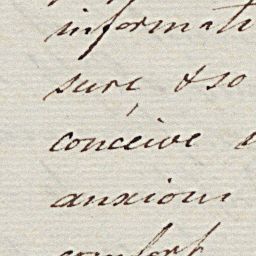 informati
sure, & so
conceive
anxious
comfort